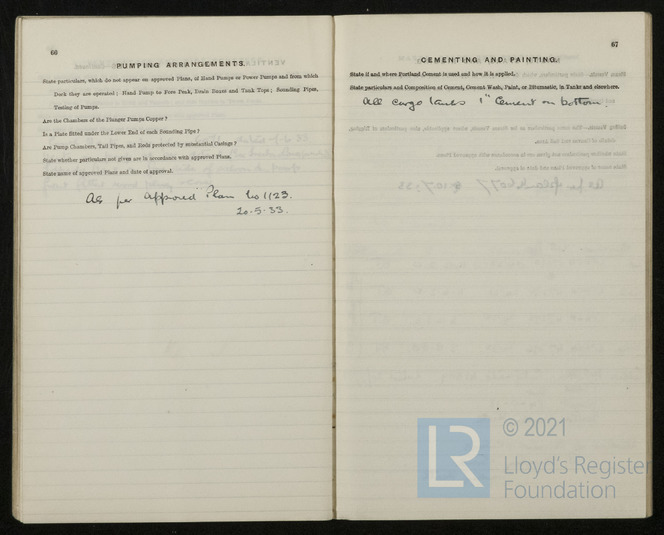 66
PUMPING ARRANGEMENTS.
State particulars, which do not appear on approved Plans, of Hand Pumps or Power Pumps and from which
Deck they are operated; Hand Pump to Fore Peak, Drain Boxes and Tank Tops; Sounding Pipes,
Testing of Pumps.
Are the Chambers of the Plunger Pumps Copper?
Is a Plate fitted under the Lower End of each Sounding Pipe?
Are Pump Chambers, Tail Pipes, and Rods protected by substantial Casings?
State whether particulars not given are in accordance with approved Plans.
State name of approved Plans and date of approval.
As per approved Plan No 1123.
20-5-33.
67
CEMENTING AND PAINTING.
State if and where Portland Cement is used and how it is applied.
State particulars and Composition of Cement, Cement Wash, Paint, or Bitumastic, in Tanks and elsewhere.
All cargo tanks 1" Cement on bottom.
LR
© 2021
Lloyd's Register
Foundation